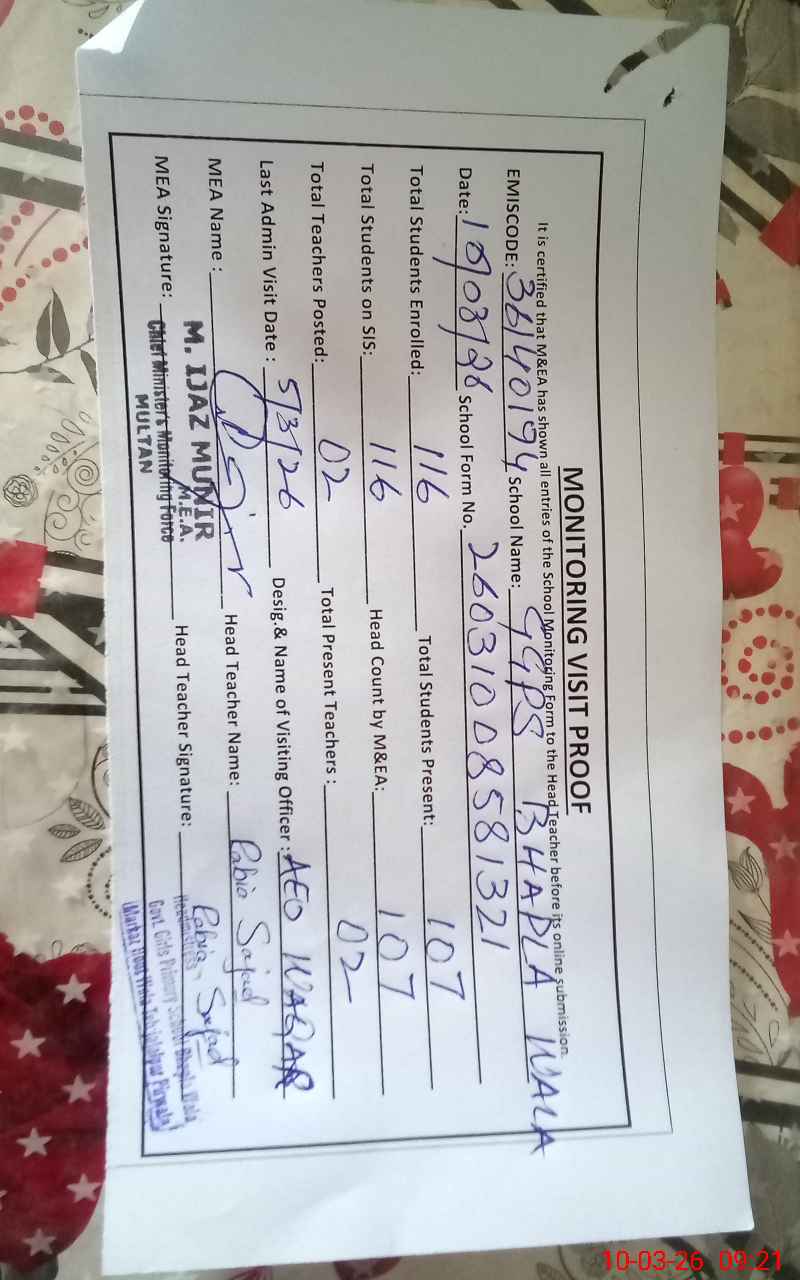 MONITORING VISIT PROOF
It is certified that M&EA has shown all entries of the School Monitoring Form to the Head Teacher before its online submission.
EMISCODE: 36140194 School Name: GGPS BHAPLA WALA
Date: 10/03/26 School Form No. 2603100858 1321
Total Students Enrolled: 116 Total Students Present: 107
Total Students on SIS: 116 Head Count by M&EA: 107
Total Teachers Posted: 02 Total Present Teachers : 02
Last Admin Visit Date : 5/3/26 Desig.& Name of Visiting Officer : AEO WAQAR
MEA Name : Head Teacher Name: Rabia Sajad
MEA Signature: Head Teacher Signature: Rabia Sajad
M. IJAZ MUNIR
M.E.A.
Chief Minister's Monitoring Force
MULTAN
Headmistress
Govt. Girls Primary School Bhapla Wala
10-03-26 09:21